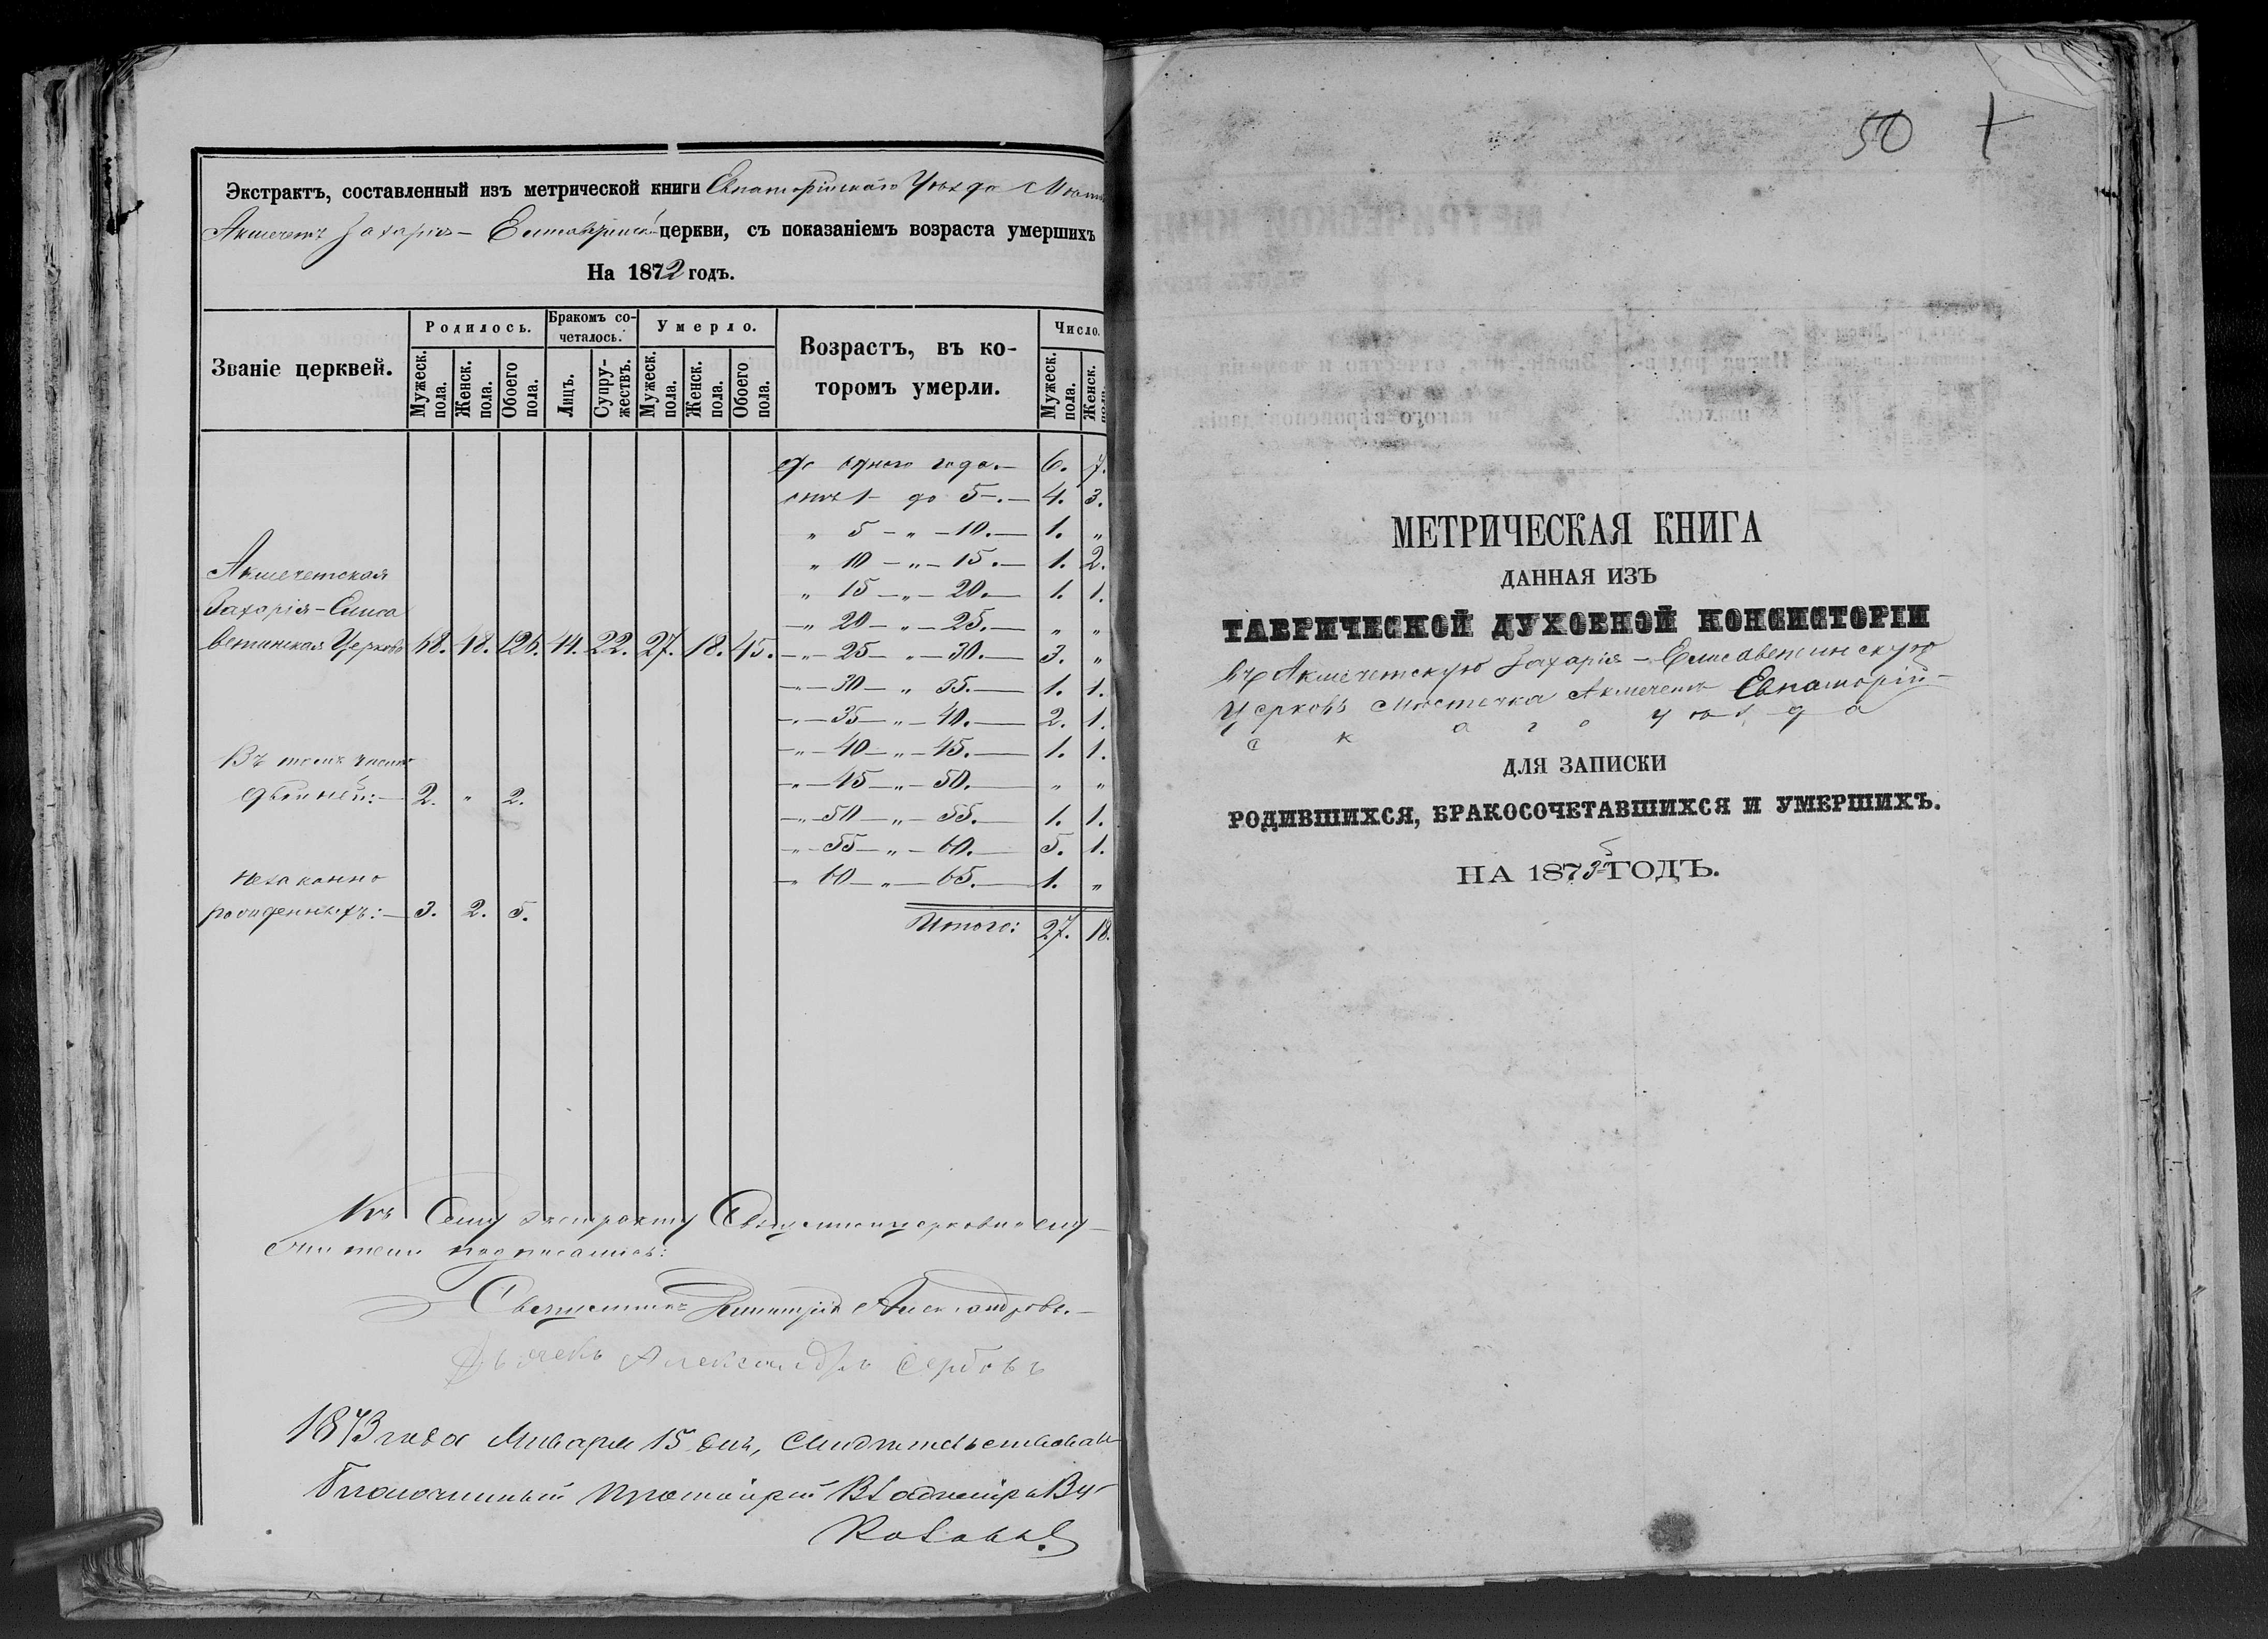 Экстрактъ, составленный изъ метрической книги Евпаторійскаго Уѣзда
Акмечетъ Захаріе- церкви, съ показаніемъ возраста умершихъ
На 1872 годъ.
Званіе церквей.
Родилось.
Бракомъ со-
четалось.
Умерло.
Возрастъ, въ ко-
торомъ умерли.
Число.
Мужеск. пола.
Женск. пола.
Обоего пола.
Лицъ.
Супру-
жествъ.
Мужеск. пола.
Женск. пола.
Обоего пола.
Мужеск. пола.
Женск. пола.
до одного года. — 6. 7.
отъ 1 — до 5 —. — 4. 3.
" 5 — " — 10. — 1. "
" 10 — " — 15. — 1. 2.
" 15 — " — 20. — 1. 1.
" 20 — " — 25. — " "
" 25 — " — 30. — 3. "
" 30 — " 35. — 1. 1.
" 35 — " — 40. — 2. 1.
" 40 — " — 45. — 1. 1.
" 45 — " — 50. — " "
" 50 — " — 55. — 1. 1.
" 55 — " — 60. — 5. 1.
" 60 — " — 65. — 1. "
Итого: 27. 18.
Акмечетская
Захарія-Елиса
ветинская Церковь 48. 126. 44. 22. 27. 18. 45.
Въ томъ числѣ
двойней: — 2. " 2.
Незаконно
рожденныхъ: — 3. 2. 5.
Къ Сему экстракту
подписались:
Священникъ Димитрій Александровъ.
Дьячекъ Александръ Сербовъ
1873 года Января 15 дня, свидѣтельствовалъ
Благочинный Протоіерей Владиміръ Ву-
коловъ.
50
МЕТРИЧЕСКАЯ КНИГА
ДАННАЯ ИЗЪ
ТАВРИЧЕСКОЙ ДУХОВНОЙ КОНСИСТОРІИ
въ Акмечетскую Захарія-Елисаветинскую
Церковь Мѣстечка Акмечетъ Евпаторій-
скаго уѣзда
ДЛЯ ЗАПИСКИ
РОДИВШИХСЯ, БРАКОСОЧЕТАВШИХСЯ И УМЕРШИХЪ.
НА 1873 ГОДЪ.